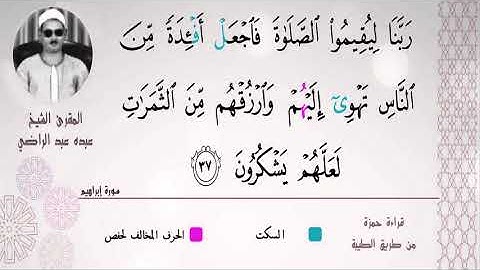 رَبَّنَا لِيُقِيمُوا۟ ٱلصَّلَوٰةَ فَٱجْعَلْ أَفْـِٔدَةً مِّنَ
ٱلنَّاسِ تَهْوِىٓ إِلَيْهُمْ وَٱرْزُقْهُم مِّنَ ٱلثَّمَرَٰتِ
لَعَلَّهُمْ يَشْكُرُونَ ٣٧
المقرئ الشيخ
عبده عبد الراضي
سورة إبراهيم
قراءة حمزة
من طريق الطيبة
السكت
الحرف المخالف لحفص